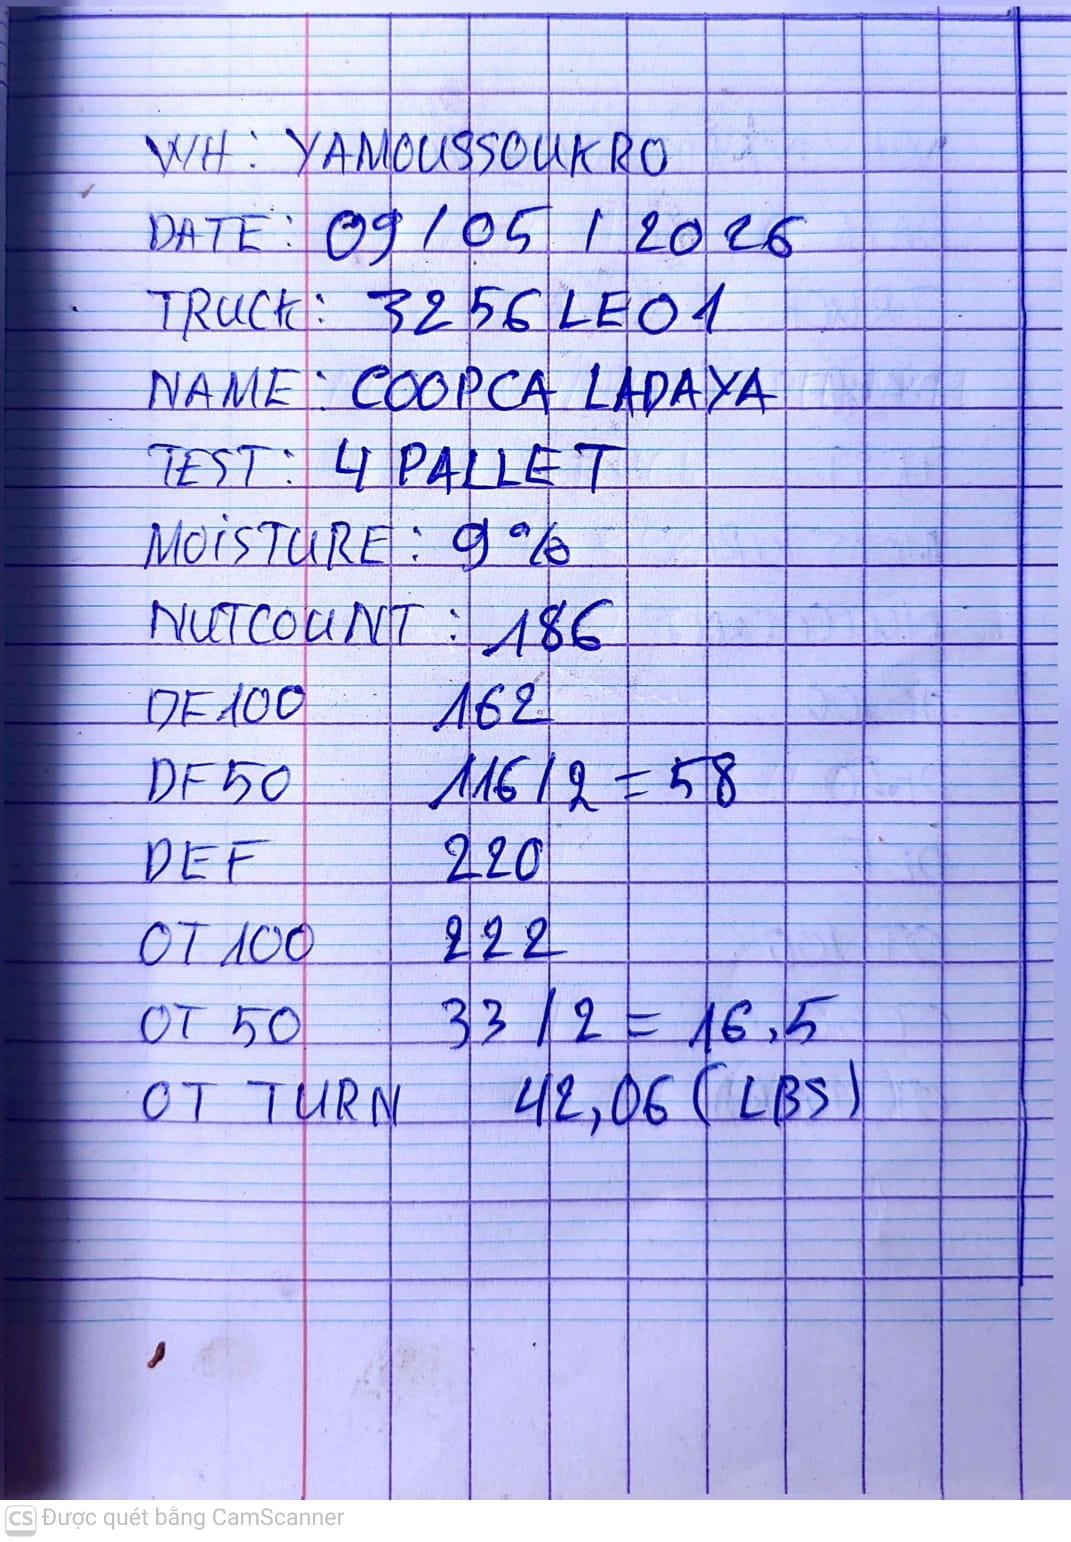 WH: YAMOUSSOUKRO
DATE: 09/05/2026
TRUCK: 3256LE01
NAME: COOPCA LADAYA
TEST: 4 PALLET
MOiSTURE: 9%
NUTCOUNT: 186
DF100 162
DF50 116/2=58
DEF 220
OT 100 222
OT 50 33/2=16,5
OT TURN 42,06(LBS)
CS Được quét bằng CamScanner